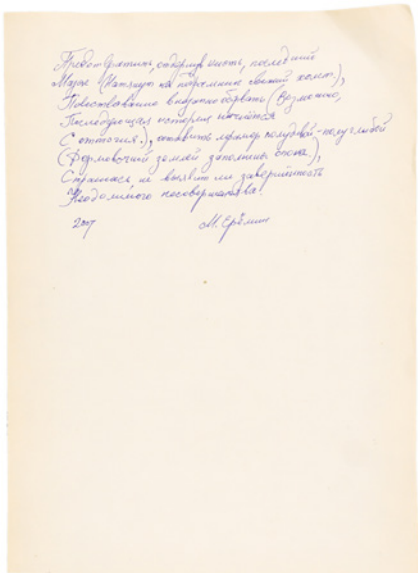 Предотвратить, отдернув кисть, последний
Мазок (Натянут на подрамник свежий холст.),
Повествование внезапно оборвать (Возможно,
Последующая история начнётся
С отточия.), оставить мрамор полу
(Формовочной землёй заполнены опока.),
Страшась не выявит ли завершённость
Неодолимого несовершенства.
2007 М. Ерёмин